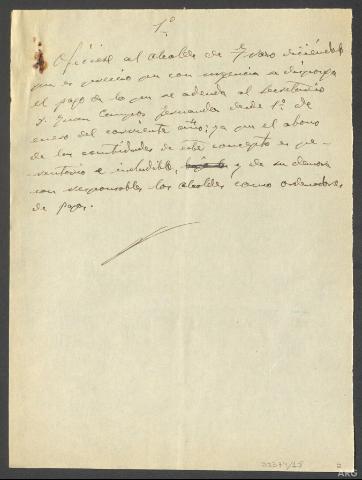 1º
Ofíciese al alcalde de diciéndole
que es preciso que con urgencia se disponga
el pago de lo que se adeuda al Secretario
D. Juan Campos Fernandez desde 1º de
enero del corriente año; ya que el abono
de las cantidades de este concepto es pe-
rentorio e ineludible, y de su demora
son responsables los alcaldes como ordenadores
de pagos.
ARG